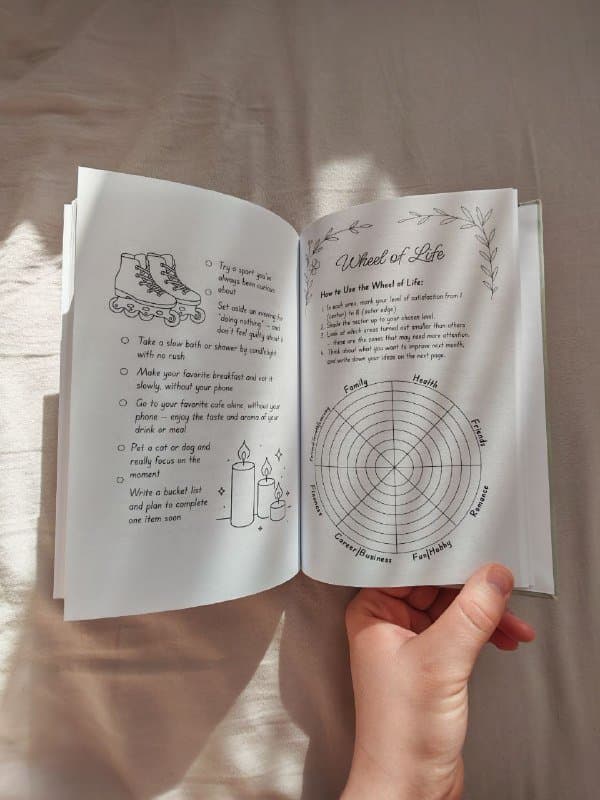 Try a sport you're
always been curious
about
Set aside an evening for
"doing nothing" — and
don't feel guilty about it
Take a slow bath or shower by candlelight,
with no rush
Make your favorite breakfast and eat it
slowly, without your phone
Go to your favorite cafe alone, without your
phone — enjoy the taste and aroma of your
drink or meal
Pet a cat or dog and
really focus on the
moment
Write a bucket list
and plan to complete
one item soon
Wheel of Life
How to Use the Wheel of Life:
1. In each area, mark your level of satisfaction from 1
(center) to 10 (outer edge)
2. Shade the sector up to your chosen level.
3. Look at which areas turned out smaller than others
— these are the zones that may need more attention.
4. Think about what you want to improve next month,
and write down your ideas on the next page.
Family
Health
Friends
Romance
Fun/Hobby
Career/Business
Finances